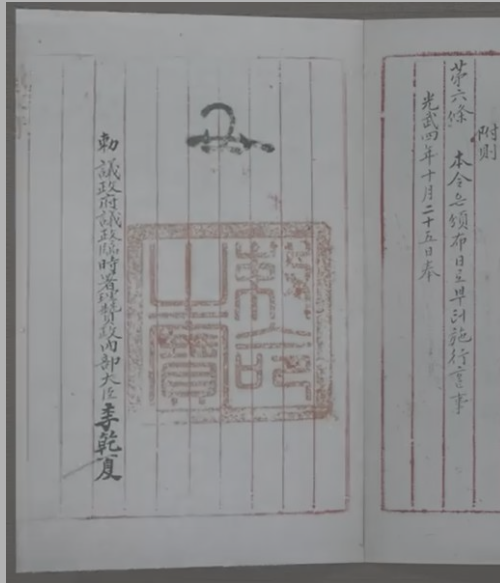 附則
第六條 本令은頒布日로부터施行ᄒᆞᆯ事
光武四年十月二十五日奉
勅命之寶
勅 議政府議政臨時署理贊政內部大臣 李乾夏